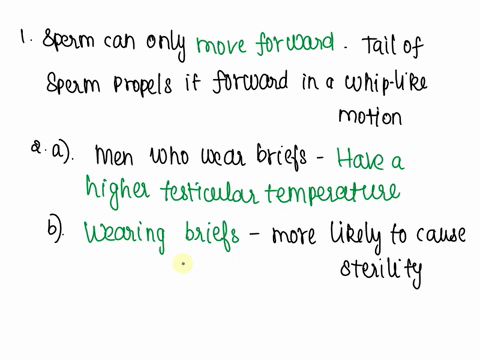 1. Sperm can only move forward. Tail of
Sperm propels it forward in a whip-like
motion
2. a). Men who wear briefs - Have a
higher testicular temperature
b). Wearing briefs - more likely to cause
sterility